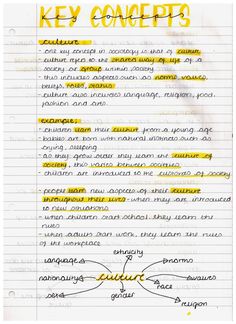 KEY CONCEPTS
key concepts
culture
- one key concept in sociology is that of culture
- culture refers to the shared way of life of a
society or group within society
- this includes aspects such as norms, values,
beliefs, roles, status
- culture also includes language, religion, food,
fashion and arts.
example:
- children learn their culture from a young age
- babies are born with natural instincts such as
crying, sleeping
- as they grow older they learn the culture of
society, this varies between societies
- children are introduced to the customs of society
- people learn new aspects of their culture
throughout their lives - when they are introduced
to new situations
- when children start school, they learn the
rules
- when adults start work, they learn the rules
of the workplace
ethnicity
language
norms
nationality
culture
values
race
sex
gender
religion